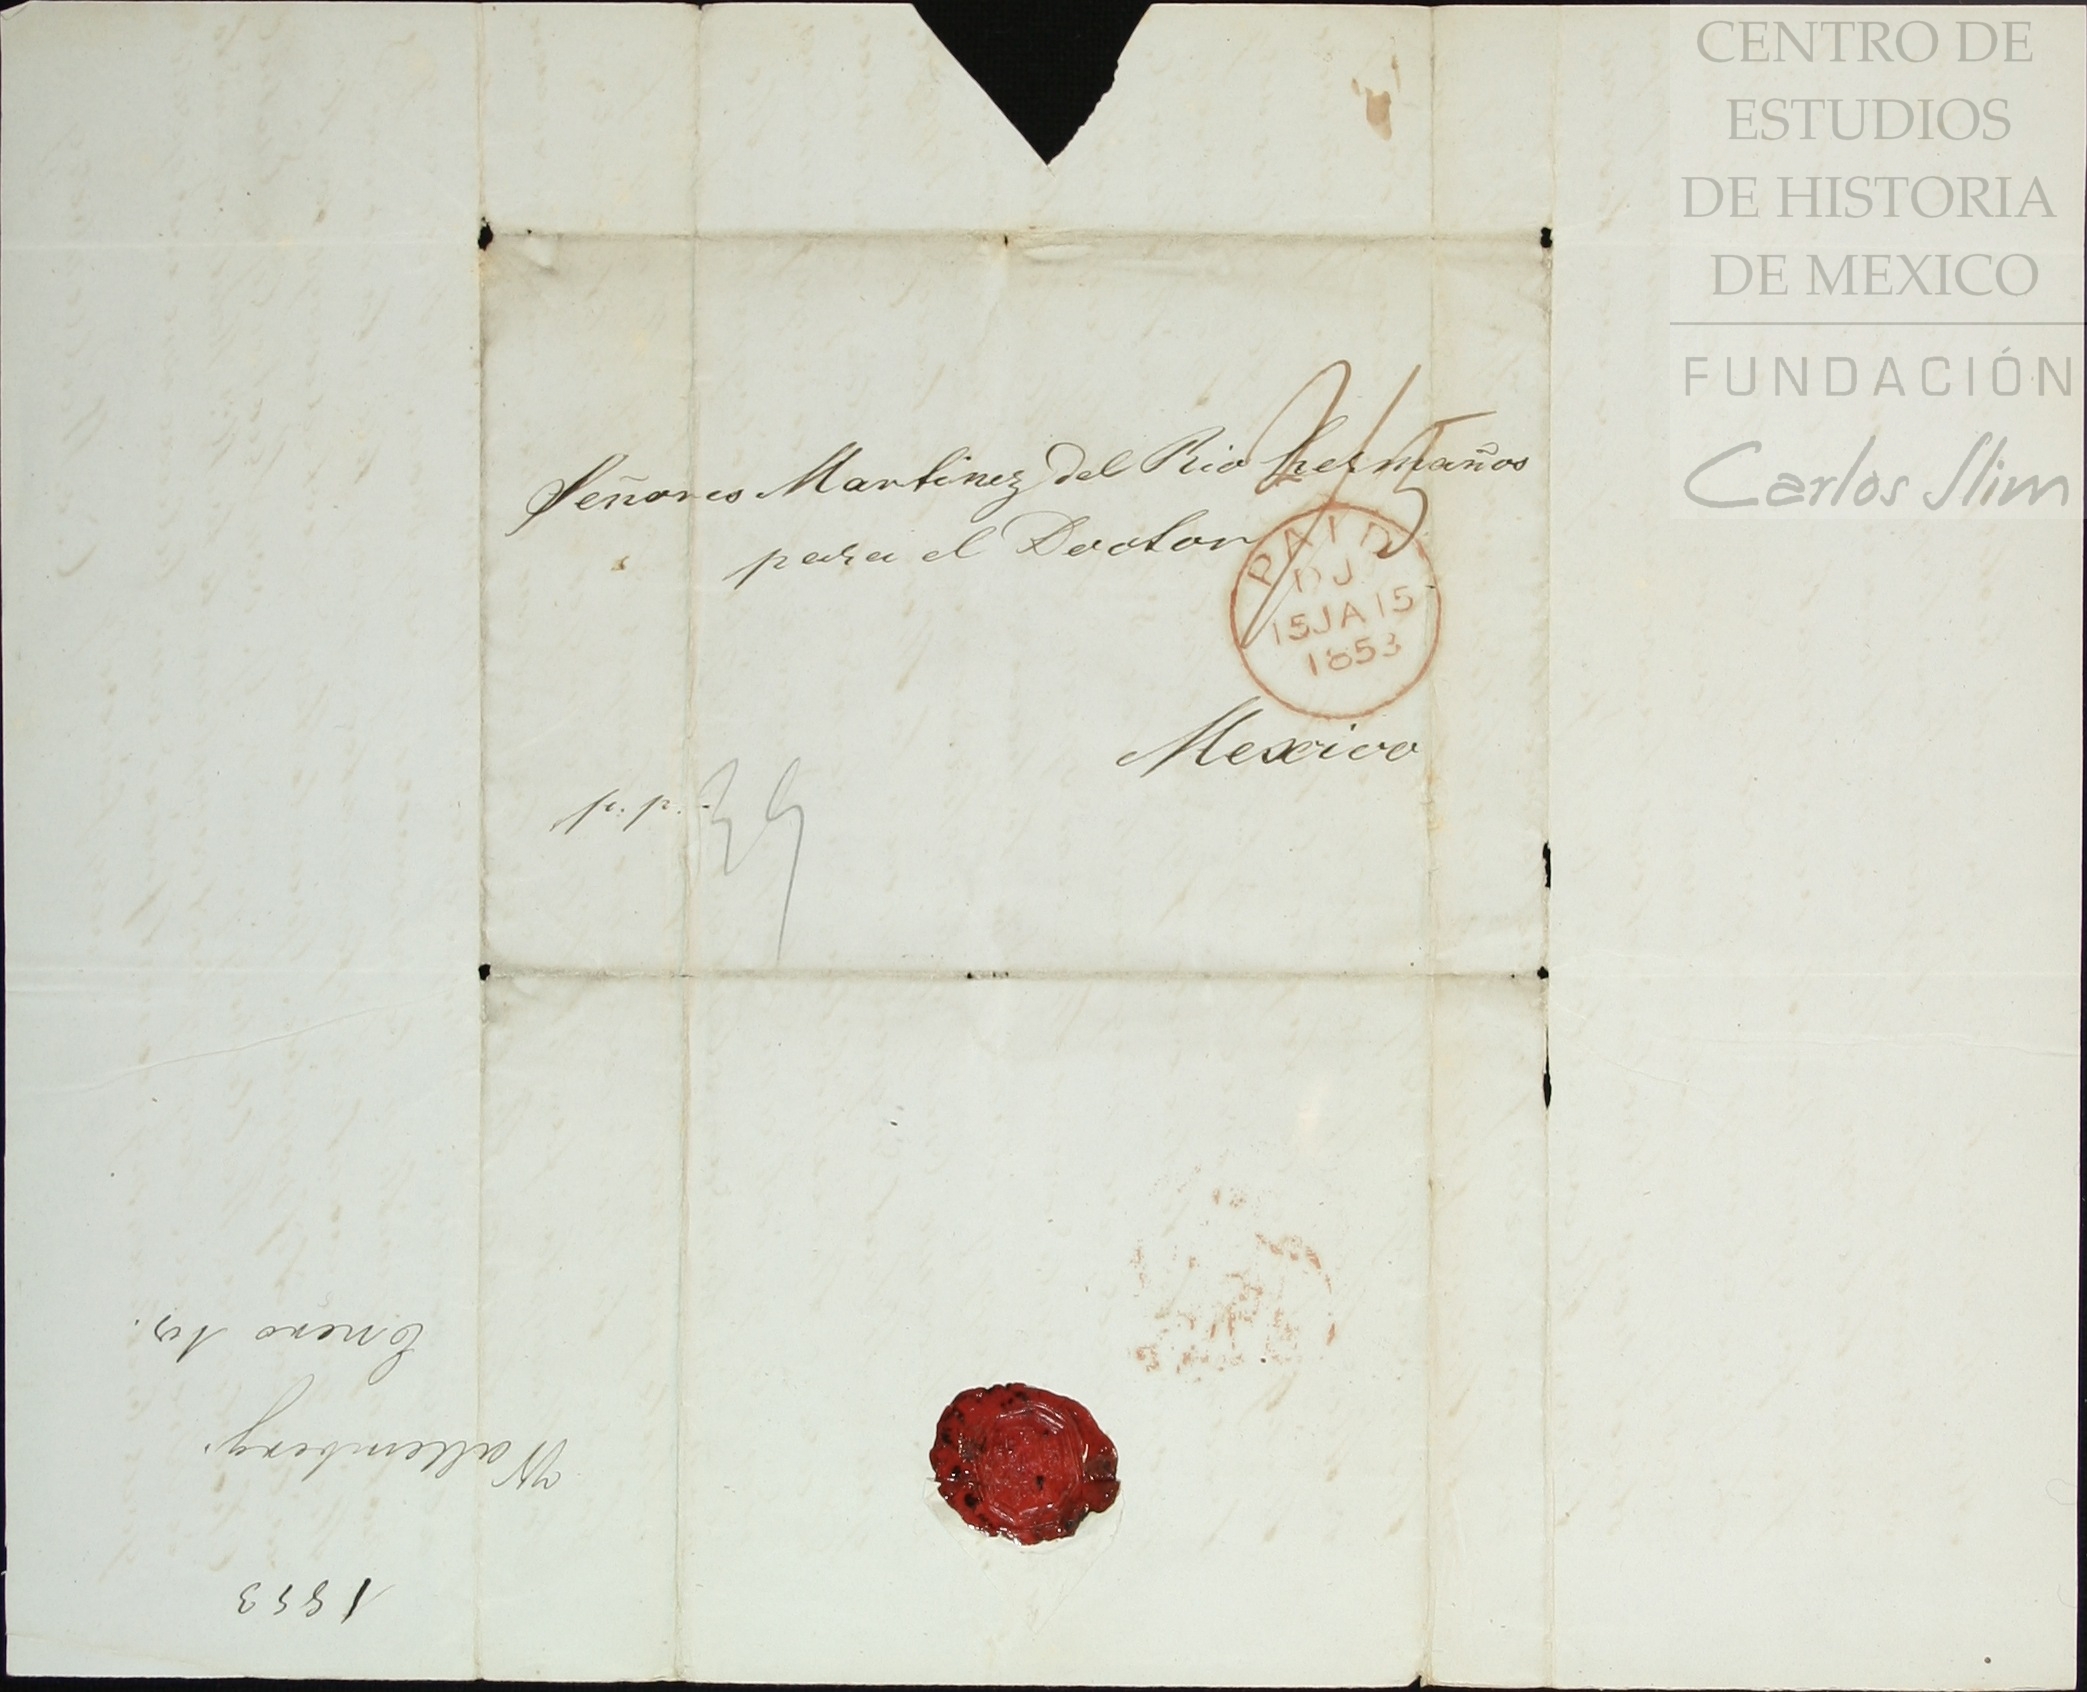 CENTRO DE
ESTUDIOS
DE HISTORIA
DE MEXICO
FUNDACIÓN
Carlos Slim
2/5
Señores Martinez del Rio hermaños
para el Doctor
PAID
DJ
15JA15
1853
Mexico
p. p.
39
1853
Wallemberg.
Enero